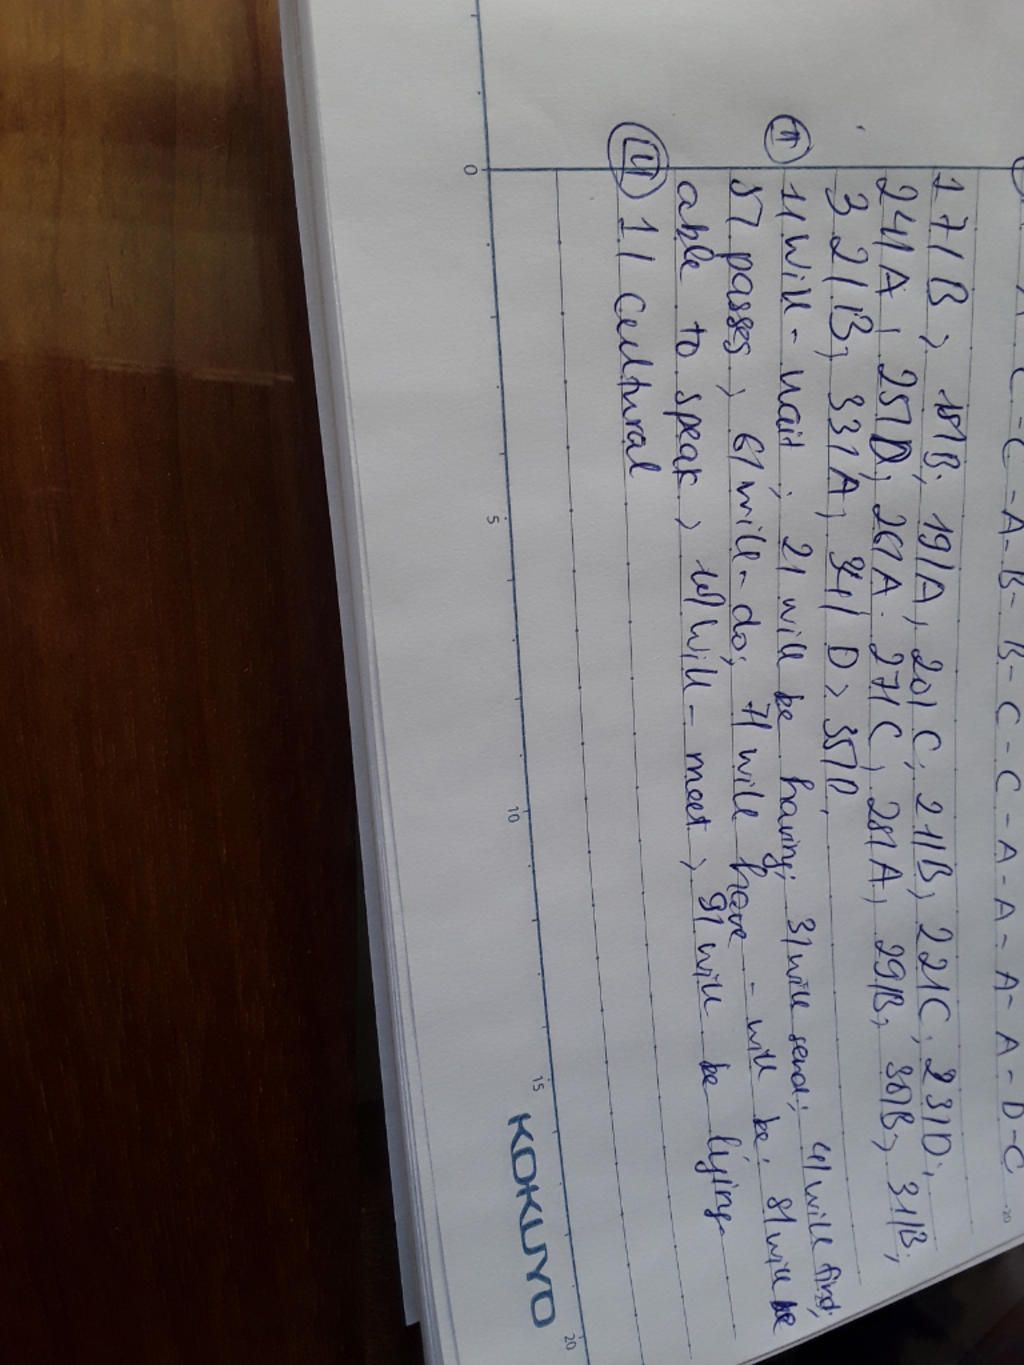 A - C - C - A - B - B - C - C - A - A - A - A - D - C
17/B, 18/B, 19/A, 20/C, 21/B, 22/C, 23/D,
24/A, 25/D, 26/A. 27/C, 28/A, 29/B, 30/B, 31/B,
32/B, 33/A, 34/D, 35/D.
II 1/ will - wait, 2/ will be having, 3/ will send, 4/ will find,
5/ passes, 6/ will - do, 7/ will have - will be, 8/ will be
able to speak, 10/ Will - meet, 9/ will be lying.
III 1/ Cultural
0 5 10 15 20
KOKUYO